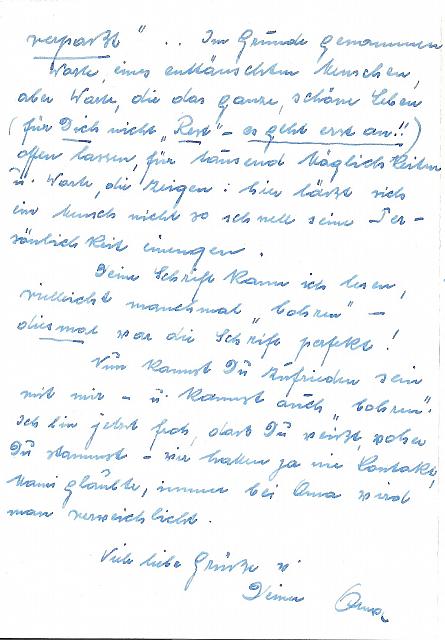 verpaßt" .. Im Grunde genommen
Worte, eines enttäuschten Menschen,
aber Worte, die das ganze, schöne Leben
(für Dich nicht „Rest" – es geht erst an!!)
offen lassen, für tausend Möglichkeiten
u. Worte, die zeigen: hier läßt sich
ein Mensch nicht so schnell seine Per-
sönlichkeit einengen.
Deine Schrift kann ich lesen,
vielleicht manchmal „bohren" –
diesmal war die Schrift perfekt!
Nun kannst Du zufrieden sein
mit mir – u. kannst auch „bohren".
Ich bin jetzt froh, daß Du weißt, woher
Du stammst – wir hatten ja nie Contakt,
Mami glaubte, immer bei Oma wird
man verweichlicht.
Viele liebe Grüße
Deine Oma